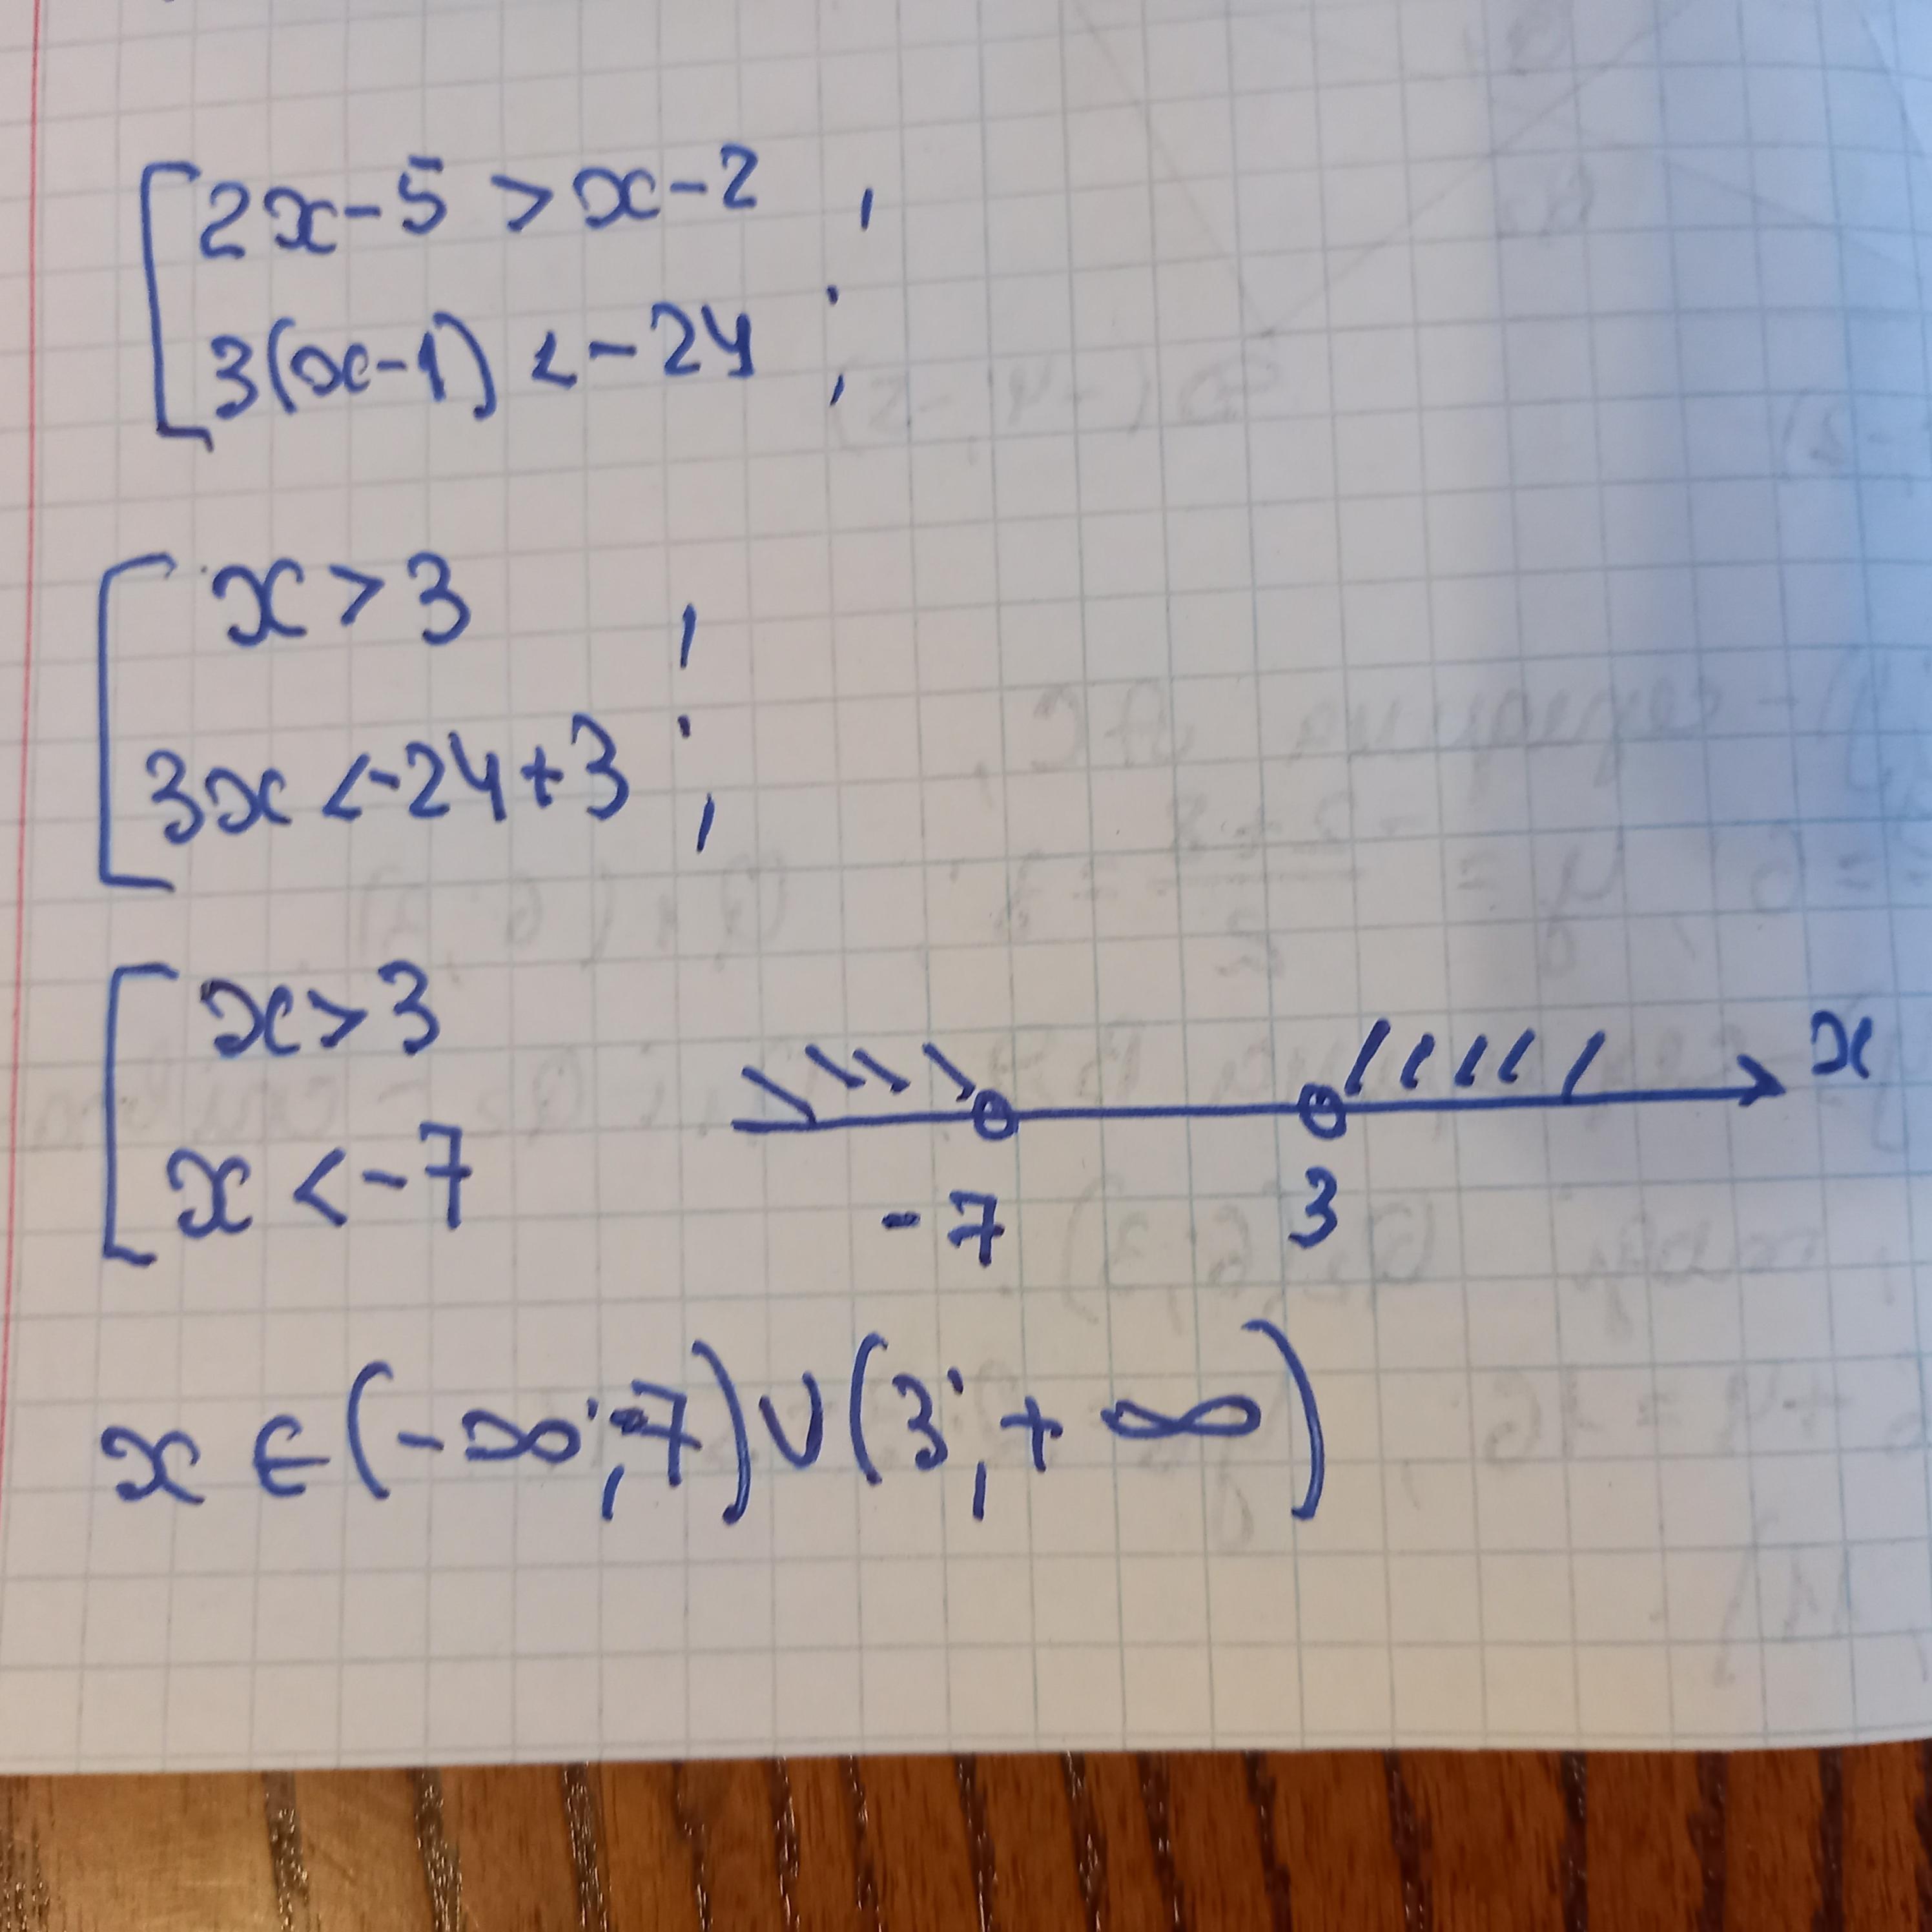 [2x-5 > x-2 ,
3(x-1) < -24 ;
[x > 3 ,
3x < -24+3 ;
[x > 3
x < -7
x
-7 3
x ∈ (-∞; -7) ∪ (3; +∞)